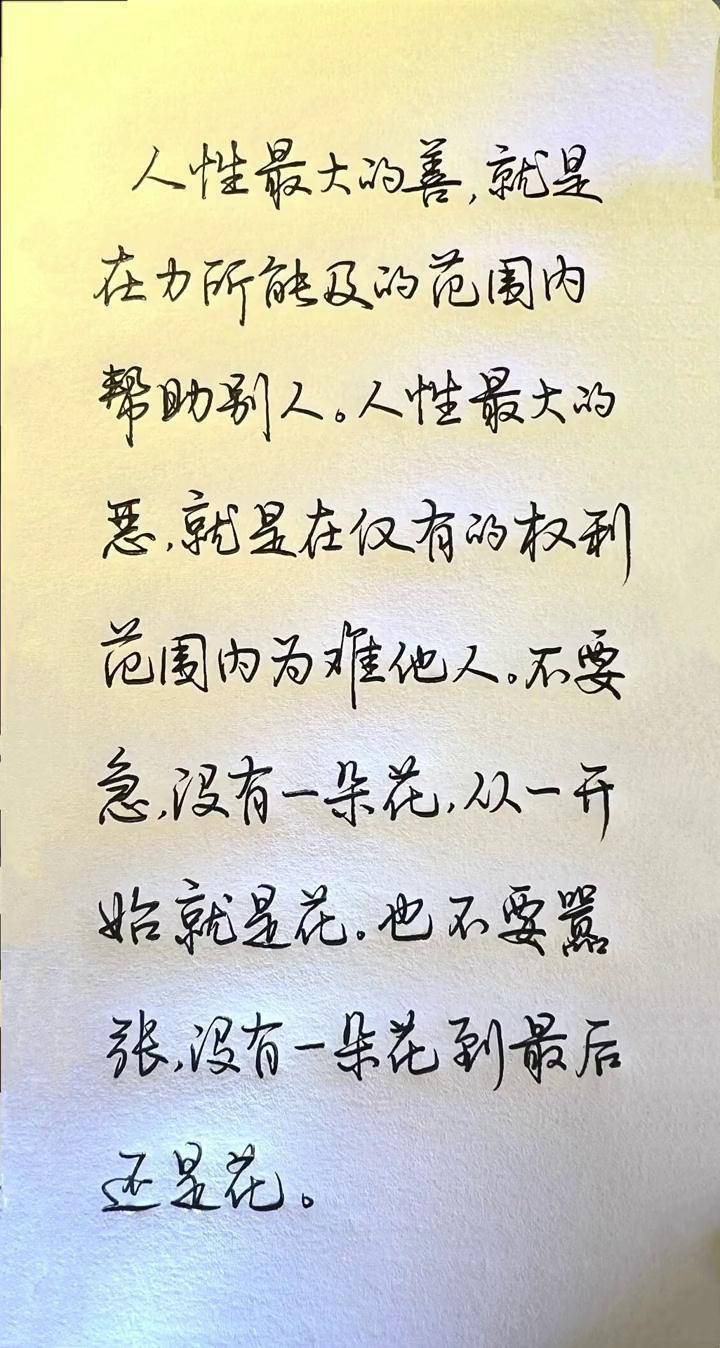 人性最大的善,就是
在力所能及的范围内
帮助别人。人性最大的
恶,就是在仅有的权利
范围内为难他人。不要
急,没有一朵花,从一开
始就是花。也不要嚣
张,没有一朵花到最后
还是花。